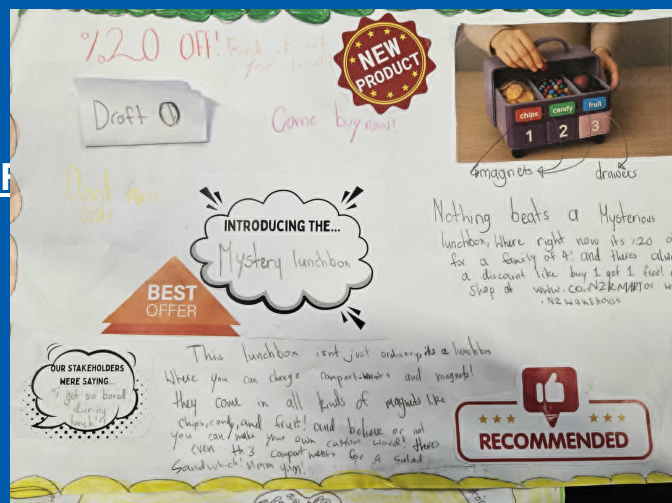 %20 OFF! Find it at
your local
NEW
PRODUCT
Draft 1
Come buy now!
chips candy fruit
1 2 3
magnets drawers
Dont
F
INTRODUCING THE...
Mystery lunchbox
Nothing beats a Mysterious
lunchbox, Where right now its %20
for a family of 4! and theres
a discount like buy 1 got 1 free!
shop at www.co.NZKMART or
BEST
OFFER
OUR STAKEHOLDERS
WERE SAYING...
"I get so bored
during
lunch!"
This lunchbox isnt just ordinary, its a lunchbox
Where you can change compartments and magnets!
they come in all kinds of magnets like
chips, candy, and fruit! and believe or not
you can make your own custom word! theres
even 3 compartments for a salad
Sandwich! Mmm yum!
RECOMMENDED